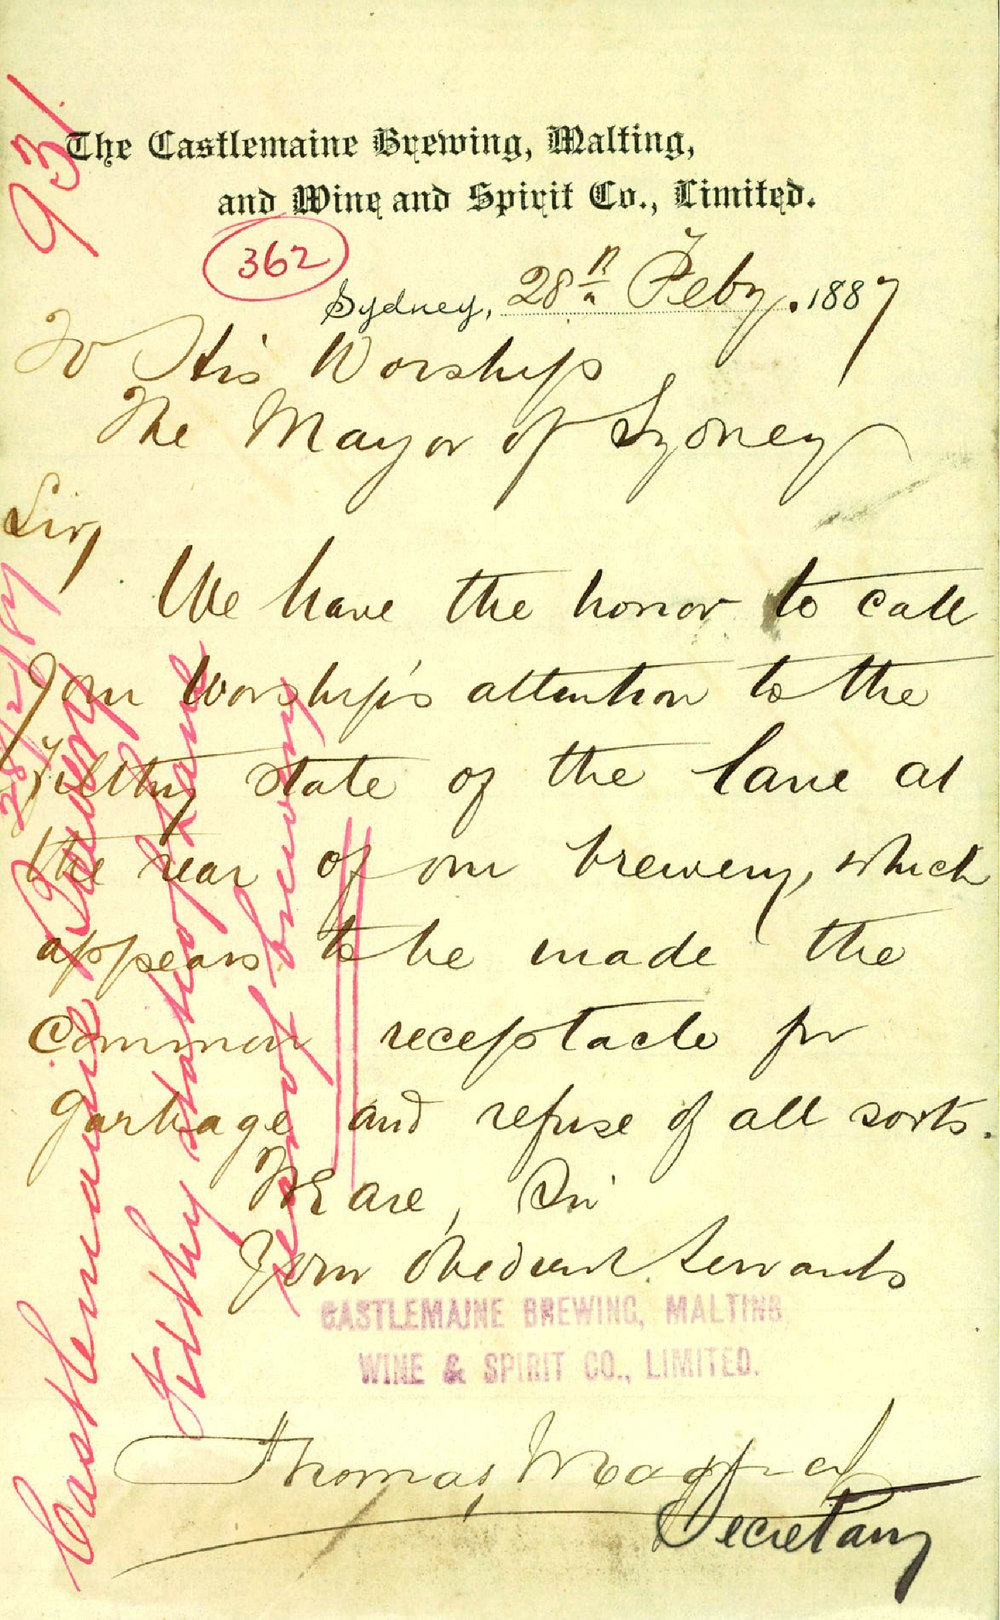 The Castlemaine Brewing, Malting,
and Wine and Spirit Co., Limited.
931.
362
Sydney, 28th Feby. 1887
To His Worship
The Mayor of Sydney
Sir,
We have the honor to call
Your Worship's attention to the
Filthy state of the lane at
the rear of our brewery, which
appears to be made the
Common receptacle for
garbage and refuse of all sorts.
We are, Sir
Your Obedient Servants
CASTLEMAINE BREWING, MALTING,
WINE & SPIRIT CO., LIMITED.
Thomas
Secretary
28/2/87
Castlemaine Brewery
Filthy state of Lane
rear of brewery